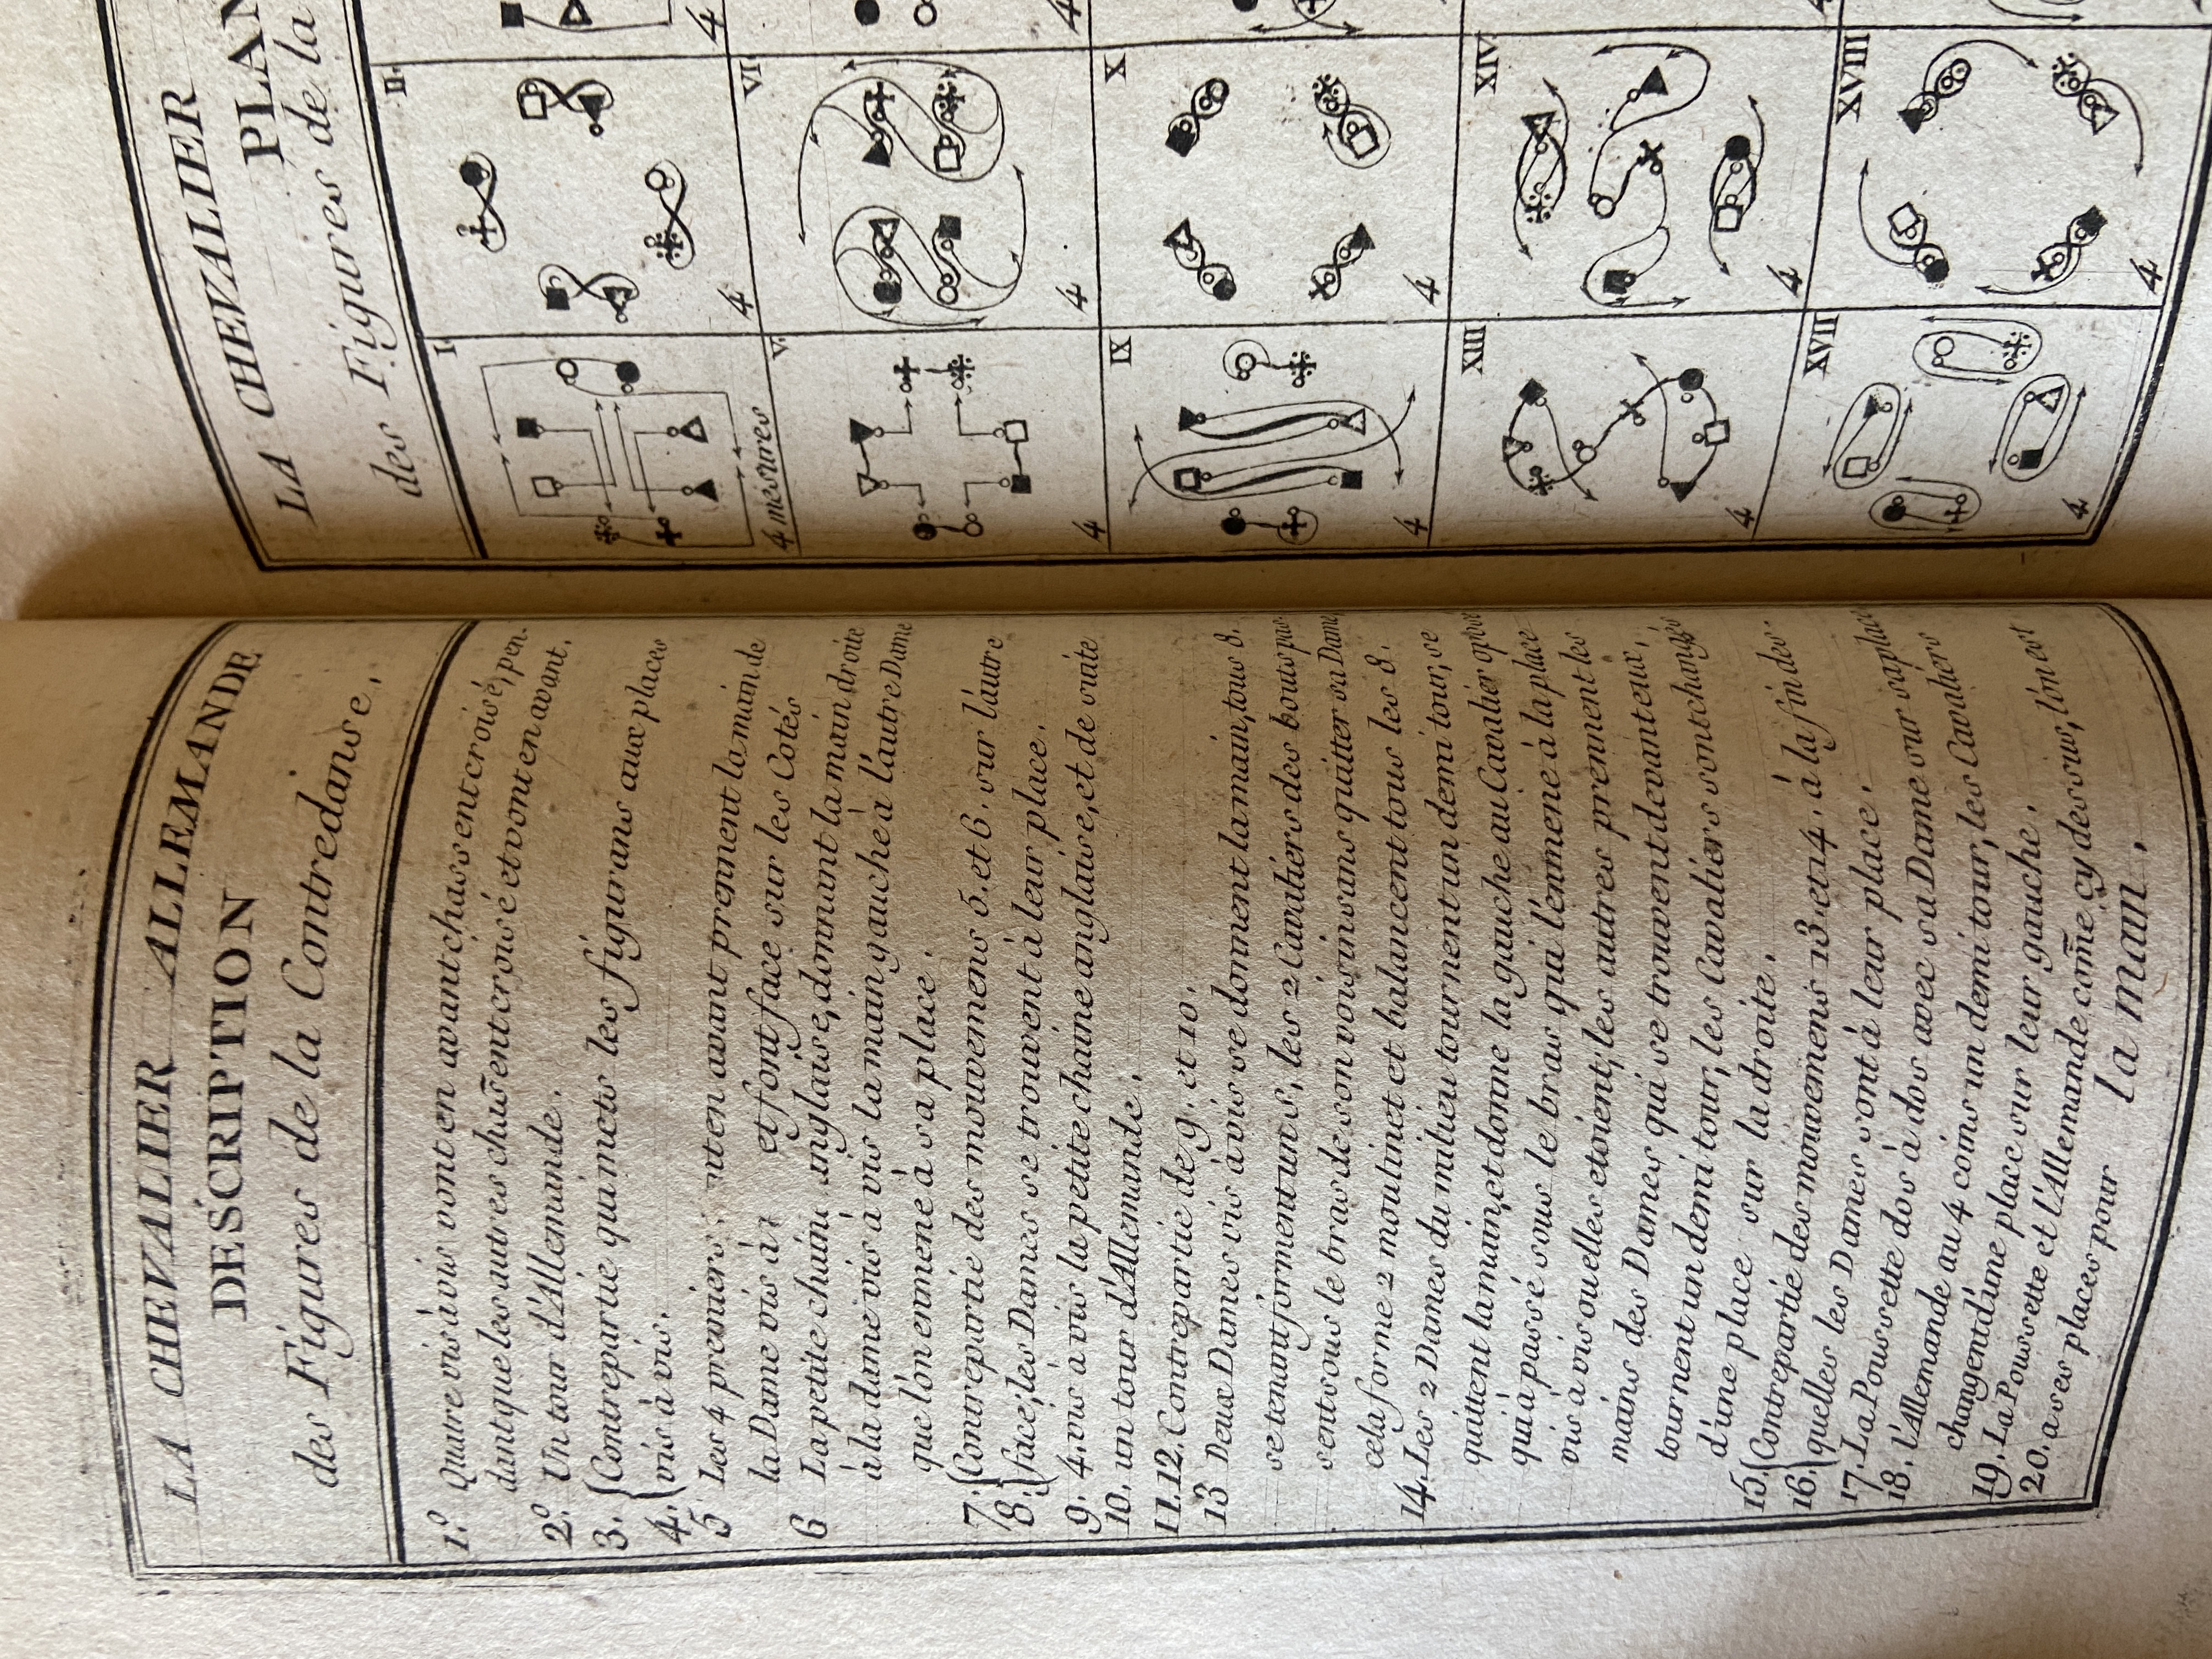 LA CHEVALIER ALLEMANDE
DESCRIPTION
des Figures de la Contredanse.
1.º Quatre vis à vis vont en avant chassent croisé, pen-
dant que les autres chass̃ent croisé et vont en avant.
2.º Un tour d'Allemande.
3. Contrepartie qui mets les figurans aux places
4. vis à vis.
5 Les 4 premiers en avant prennent la main de
la Dame vis à et font face sur les Cotés
6 La petite chaine anglaise, donnant la main droite
à la dame vis à vis la main gauche à l'autre Dame
que l'on emmene à sa place.
7. Contrepartie des mouvemens 5. et 6. sur l'autre
8. face, les Dames se trouvent à leur place.
9. 4. vis à vis la petite chaine anglaise, et de suite
10. un tour d'Allemande.
11. 12. Contrepartie de 9. et 10.
13 Deux Dames vis à vis se donnent la main, tous 8.
se tenant forment un s, les 2 Cavaliers des bouts
sent sous le bras de son voisin sans quitter sa Dame
cela forme 2 moulinet et balancent tous les 8.
14. Les 2 Dames du milieu tournent un demi tour, se
quittent la main, et donne la gauche au Cavalier
qui à passé sous le bras qui l'emmene à la place
vis à vis ou elles etoient, les autres prennent les
mains des Dames qui se trouvent devant eux,
tournent un demi tour, les Cavaliers sont changés
d'une place sur la droite.
15. Contrepartie des mouvemens 13. et 14. à la fin des-
16. quelles les Dames sont à leur place.
17. La Poussette dos à dos avec sa Dame sur sa place
18. l'Allemande au 4 coins un demi tour, les Cavaliers
changent d'une place sur leur gauche.
19. La Poussette et l'Allemande com̃e cy dessus, l'on est
20. a ses places pour la main.
LA CHEVALIER
PLAN
des Figures de la
I.
4 mesures
II.
4
4
V.
4
VI
4
4
IX
4
X
4
XIII
4
XIV
4
XVII
4
XVIII
4